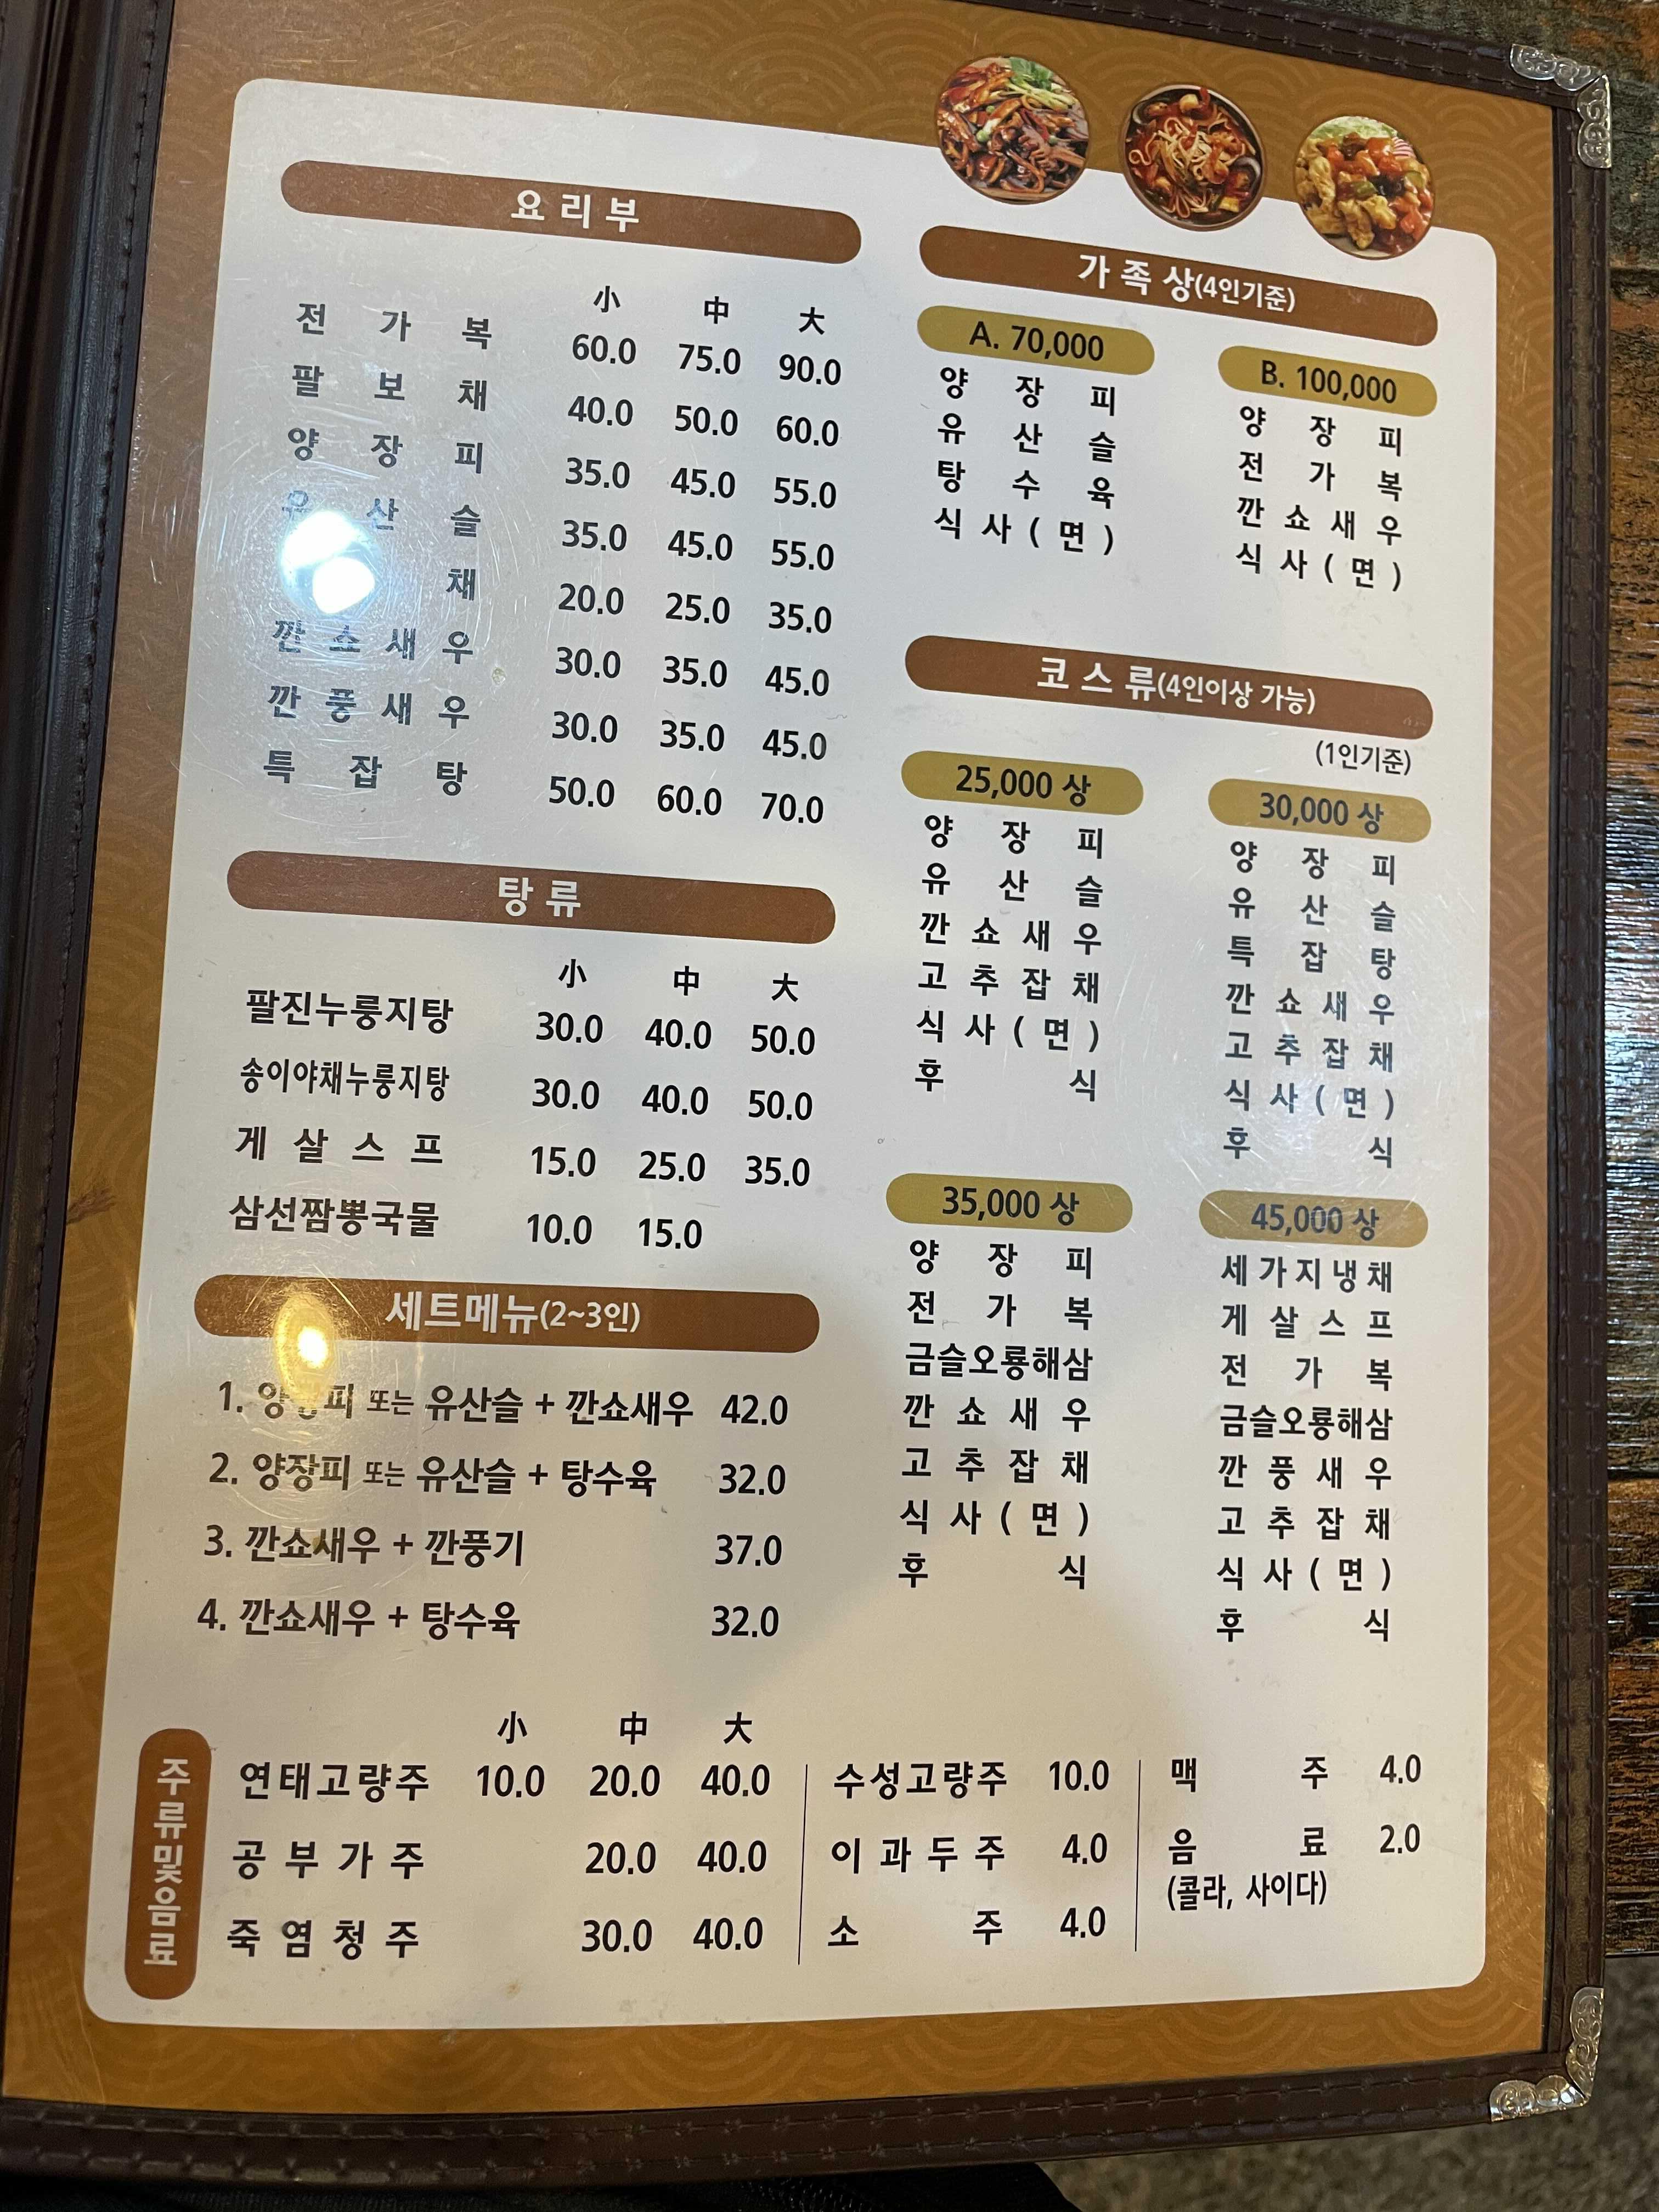 요리부
小 中 大
전가복 60.0 75.0 90.0
팔보채 40.0 50.0 60.0
양장피 35.0 45.0 55.0
유산슬 35.0 45.0 55.0
채 20.0 25.0 35.0
깐쇼새우 30.0 35.0 45.0
깐풍새우 30.0 35.0 45.0
특잡탕 50.0 60.0 70.0
탕류
小 中 大
팔진누룽지탕 30.0 40.0 50.0
송이야채누룽지탕 30.0 40.0 50.0
게살스프 15.0 25.0 35.0
삼선짬뽕국물 10.0 15.0
세트메뉴(2~3인)
1. 양장피 또는 유산슬 + 깐쇼새우 42.0
2. 양장피 또는 유산슬 + 탕수육 32.0
3. 깐쇼새우 + 깐풍기 37.0
4. 깐쇼새우 + 탕수육 32.0
가족상(4인기준)
A. 70,000
양장피
유산슬
탕수육
식사(면)
B. 100,000
양장피
전가복
깐쇼새우
식사(면)
코스류(4인이상 가능)
(1인기준)
25,000 상
양장피
유산슬
깐쇼새우
고추잡채
식사(면)
후식
30,000 상
양장피
유산슬
특잡탕
깐쇼새우
고추잡채
식사(면)
후식
35,000 상
양장피
전가복
금슬오룡해삼
깐쇼새우
고추잡채
식사(면)
후식
45,000 상
세가지냉채
게살스프
전가복
금슬오룡해삼
깐풍새우
고추잡채
식사(면)
후식
주류및음료
小 中 大
연태고량주 10.0 20.0 40.0
공부가주 20.0 40.0
죽염청주 30.0 40.0
수성고량주 10.0
이과두주 4.0
소주 4.0
맥주 4.0
음료 2.0
(콜라, 사이다)